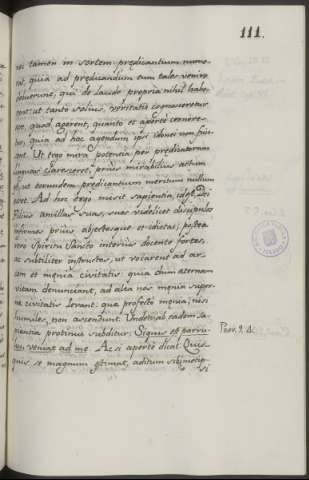 111.
nei tamen in sortem prædicantium nume-
ras, quia ad prædicandum eum tales venire
voluerunt, qui de laude propria nihil habe-
rent: ut tanto solius, veritatis cognosceretur
esse, quod agerent, quanto et aperte cernere-
tur, quia ad hoc agendum ipsi idonei non suffi-
cerent. Ut ergo mira potentia per prædicatorum
linguas claresceret, prius mirabilius actum
ut eorundem prædicantium meritum nullum
esset. Ad hoc ergo misit sapientia, id est, Dei
Filius ancillas suas, suas videlicet discipulos
infirmos prius abjectosque et idiotas; postea
vero Spiritu Sancto interius docente fortes,
ac subtiliter instructos, ut vocarent ad ar-
cem et mœnia civitatis: quia dum æternam
vitam denunciant, ad alta nos mœnia super-
næ civitatis levant. quæ profecto mœnia, nisi
humiles, non ascendunt. Unde et ab eadem sa-
pientia protinus subditur: Siquis est parvu-
lus veniat ad me. Ac si aperte dicat Quis-
quis se magnum æstimat, aditum sibimetip-
si
Prov. 9. 4.